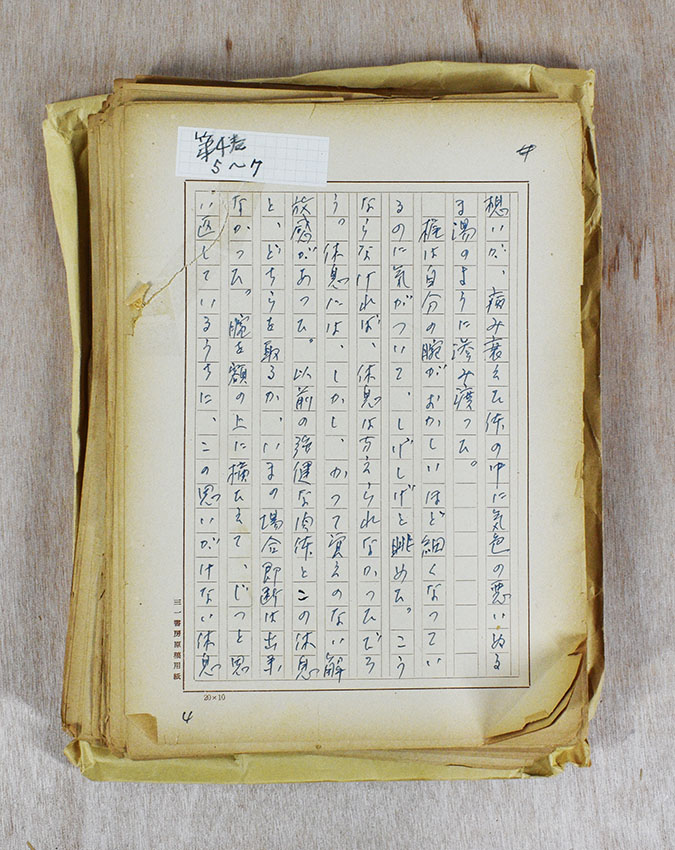 第4巻
5〜7
4
想いが、病み衰えた体の中に気色の悪いぬる
ま湯のように滲み渡った。
梶は自分の腕がおかしいほど細くなってい
るのに気がついて、しげしげと眺めた。こう
ならなければ、休息は与えられなかっただろ
う。休息には、しかし、かつて覚えのない解
放感があった。以前の強健な肉体とこの休息
と、どちらを取るか、いまの場合即断は出来
なかった。腕を額の上に横たえて、じっと思
い返しているうちに、この思いがけない休息
三一書房原稿用紙
20×10
4